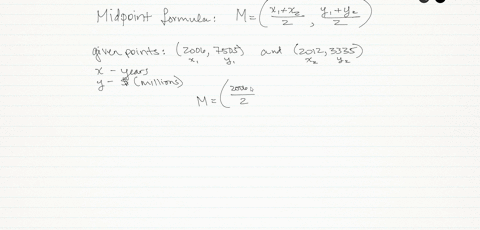 Midpoint formula: M = (x₁+x₂/2 , y₁+y₂/2)
given points: (2006, 7505) and (2012, 3335)
x₁ y₁ x₂ y₂
x - years
y - $ (millions)
M = (2006/2